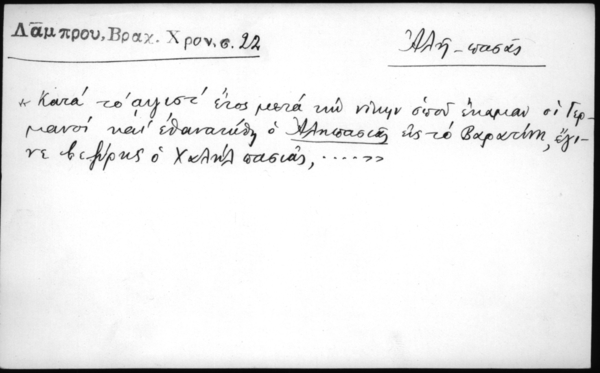 Λάμπρου, Βραχ. Χρον. σ. 22
Ἀλῆ-πασᾶς
«Κατά τό αψιστ΄ ἔτος μετά τήν νίκην ὁπού ἔκαμαν οἱ Γερ-
μανοί καί ἐθανατώθη ὁ Ἀλήπασιας εἰς τό Βαρατίνι, ἔγι-
νε βεζύρης ὁ Χαλήλ πασιάς, .....»